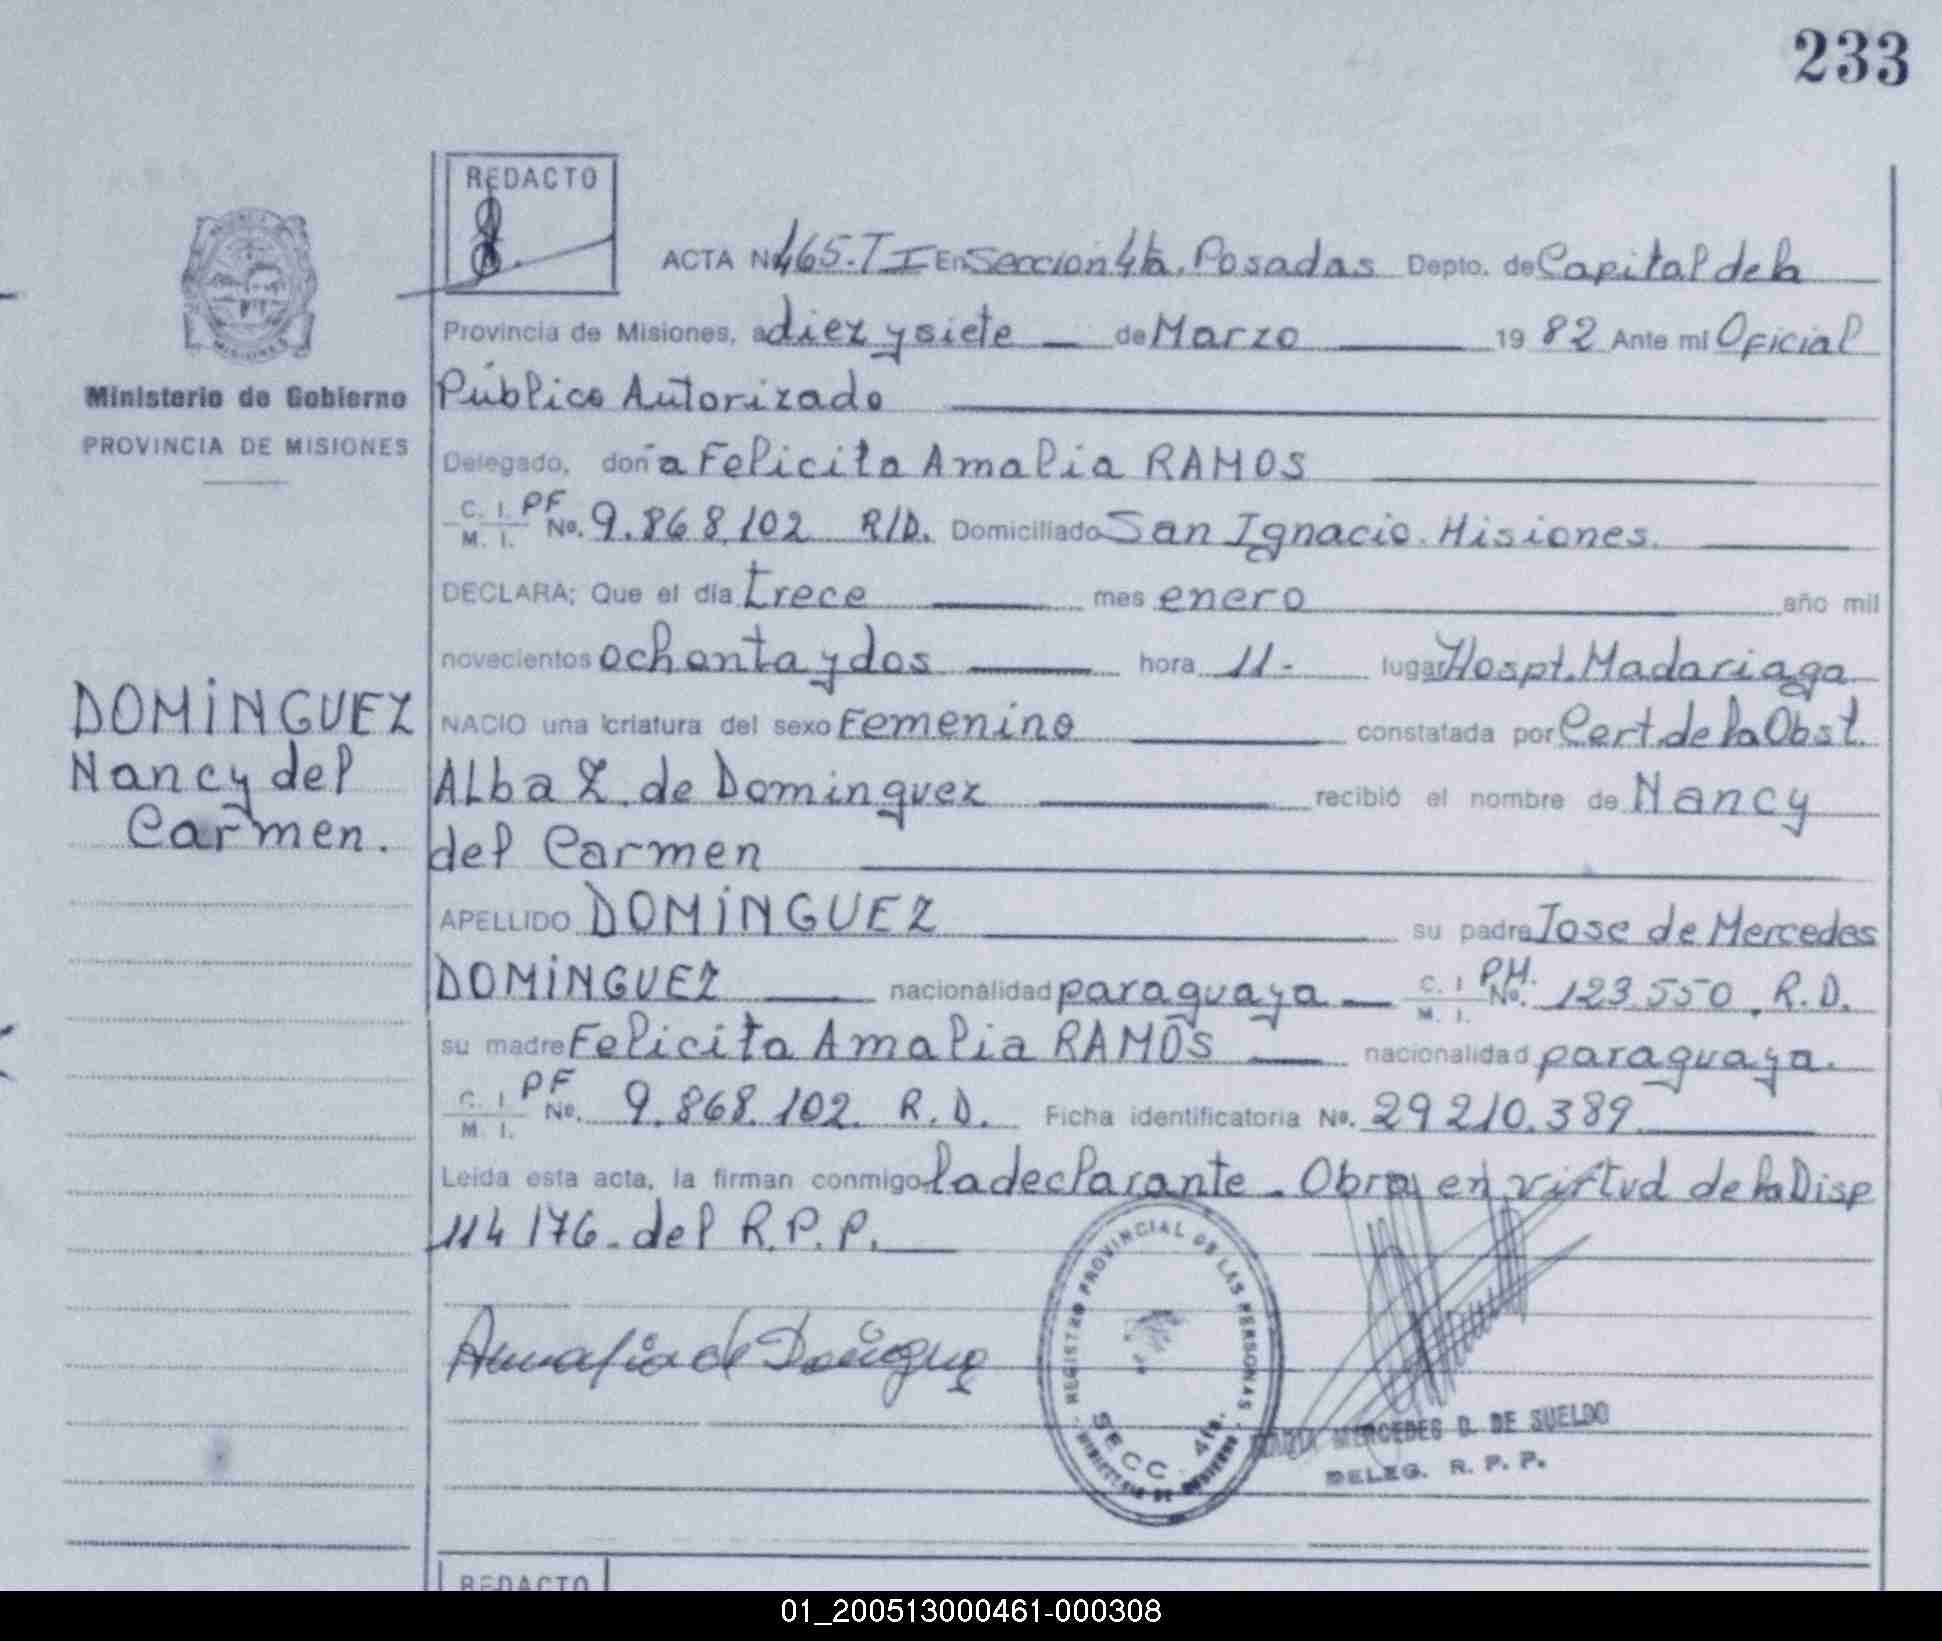 233
REDACTO
ACTA Nº 465.T I En Seccion 4ta. Posadas Depto. de Capital de la
Provincia de Misiones, a diez y siete de Marzo 1982 Ante mi Oficial
Ministerio de Gobierno
Público Autorizado
PROVINCIA DE MISIONES
Delegado, doña Felicita Amalia RAMOS
C. I. PF
M. I. No. 9.868.102 R/D. Domiciliado San Ignacio. Misiones.
DECLARA; Que el día trece mes enero año mil
novecientos ochenta y dos hora 11- lugar Hospt. Madariaga
DOMINGUEZ
NACIO una criatura del sexo Femenino constatada por Cert. de la Obst.
Nancy del
Alba Z. de Dominguez recibió el nombre de Nancy
Carmen.
del Carmen
APELLIDO DOMINGUEZ su padre Jose de Mercedes
DOMINGUEZ nacionalidad paraguaya C. I. PH.
M. I. Nº. 123.550. R.D.
su madre Felicita Amalia RAMOS nacionalidad paraguaya.
C. I. PF
M. I. No. 9.868.102. R.D. Ficha identificatoria Nº. 29210.389
Leida esta acta, la firman conmigo la declarante. Obra en virtud de la Disp
114/76. del R.P.P.
Amalia de
REGISTRO PROVINCIAL DE LAS PERSONAS
SECC. 4ta.
MINISTERIO DE GOBIERNO
MARIA MERCEDES D. DE SUELDO
DELEG. R. P. P.
REDACTO
01_200513000461-000308